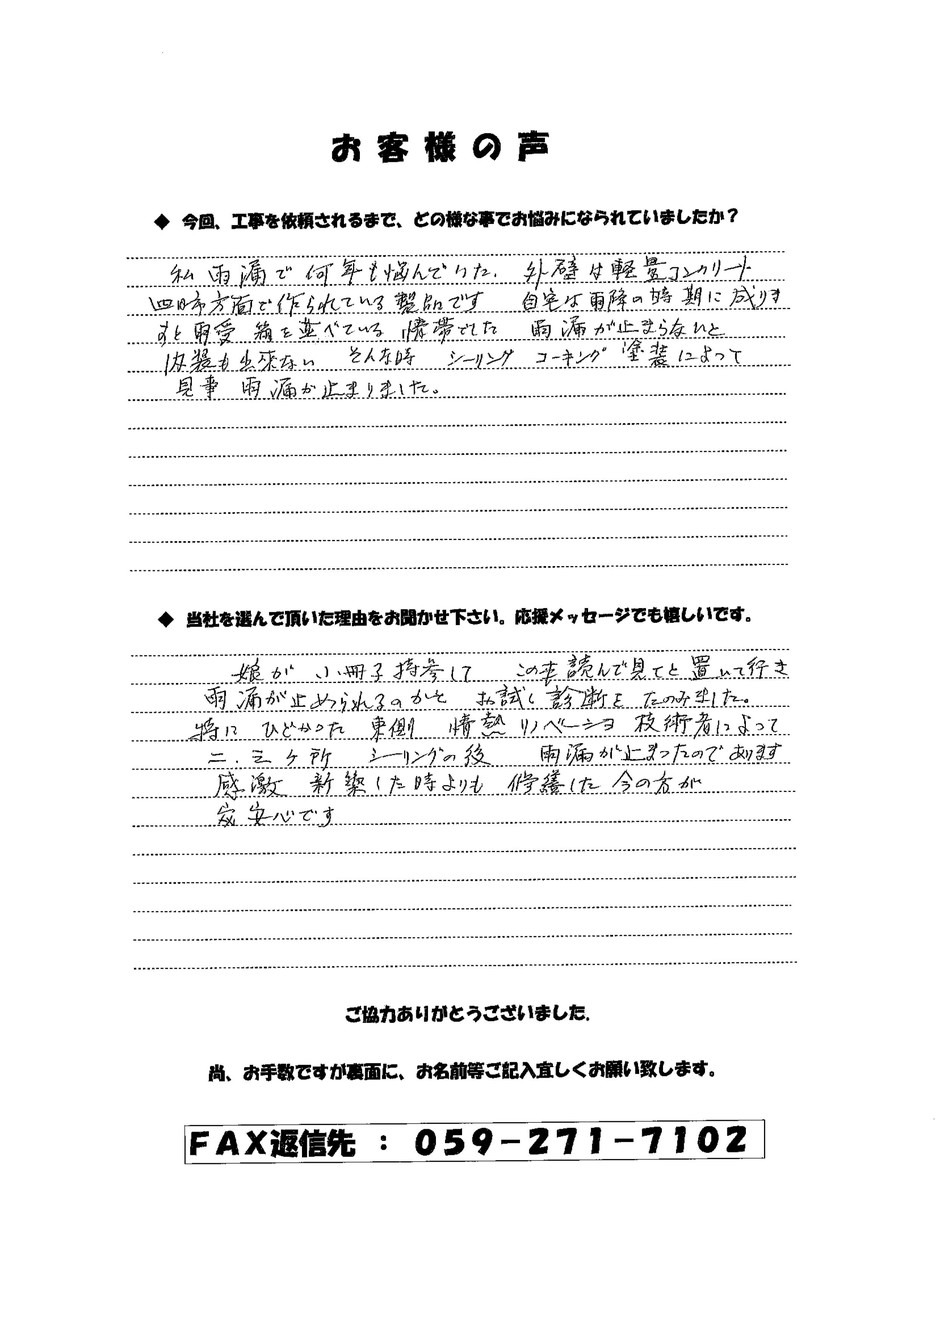 お客様の声
◆ 今回、工事を依頼されるまで、どの様な事でお悩みになられていましたか？
私 雨漏で何年も悩んでいた. 外壁は軽量コンクリート
四日市方面で作られている製品です 自宅は雨降の時期に成りま
すと雨受 箱を並べている 情帯でした 雨漏が止まらないと
内装も出来ない そんな時 シーリング コーキング 塗装によって
見事 雨漏が止まりました。
◆ 当社を選んで頂いた理由をお聞かせ下さい。応援メッセージでも嬉しいです。
娘が 小冊子持参して この本読んで見てと置いて行き
雨漏が止められるのかと お試し診断をたのみました。
特に ひどかった 東側 情熱リノベーショ 技術者によって
二.三ヶ所 シーリングの後 雨漏が止まったのであります
感激 新築した時よりも 修繕した今の方が
安心です
ご協力ありがとうございました.
尚、お手数ですが裏面に、お名前等ご記入宜しくお願い致します。
ＦＡＸ返信先 ： ０５９－２７１－７１０２